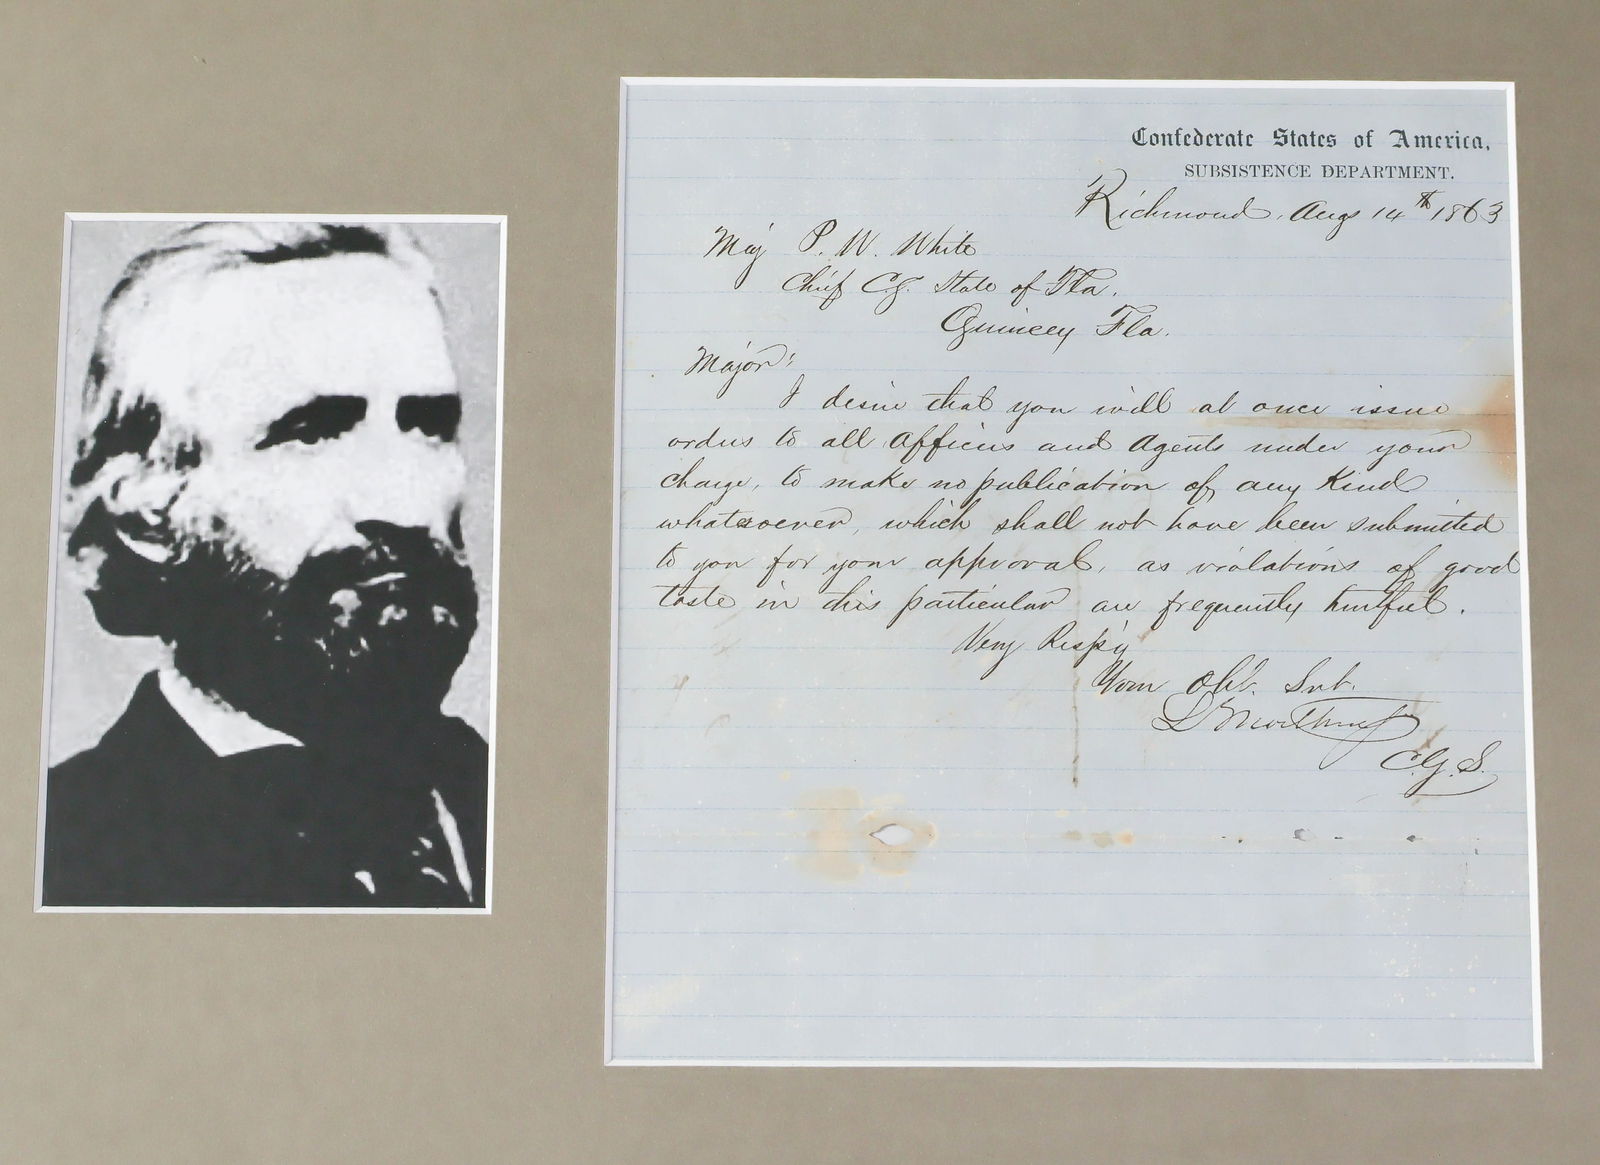 Confederate States of America,
SUBSISTENCE DEPARTMENT.
Richmond, Augs 14th 1863
Maj P. W. White
Chief C.S. State of Fla.
Quincey Fla.
Major:
I desire that you will at once issue
orders to all Officers and Agents under your
charge, to make no publication of any Kind
whatsoever, which shall not have been submitted
to you for your approval, as violations of good
taste in this particular are frequently hurtful.
Very Resp'y
Your Obt. Svt.
L B Northrop
C.G.S.